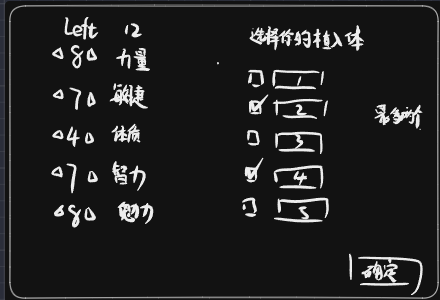 Left 12
8 力量
7 敏捷
4 体质
7 智力
8 魅力
选择你的植入体
1
2
3
4
5
最多两个
确定